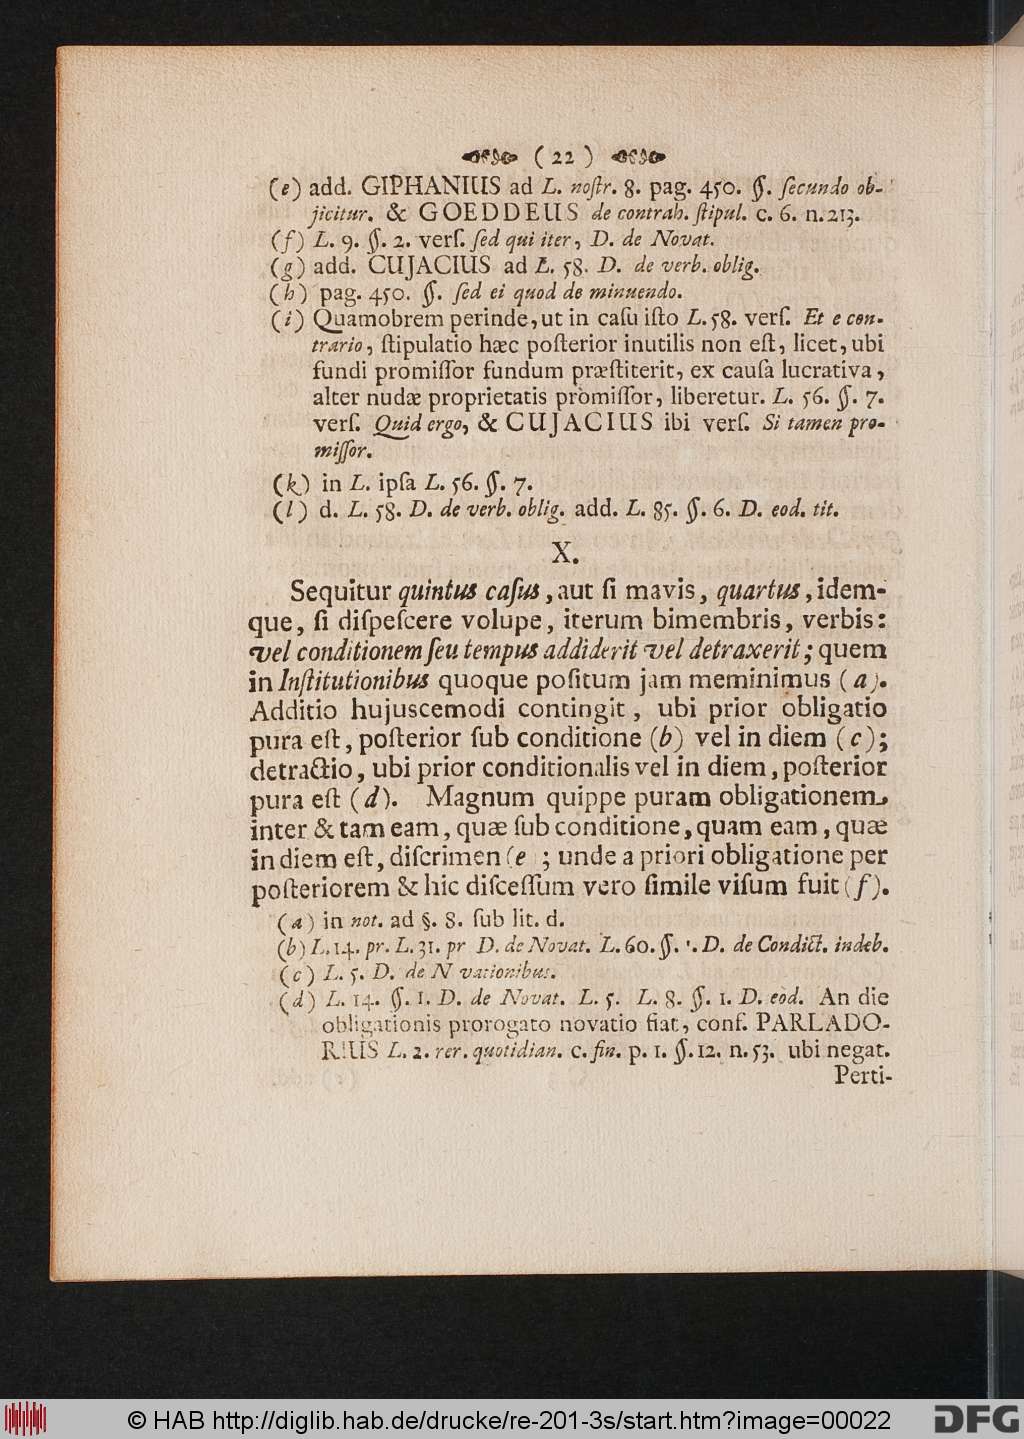 ( 22 )
(e) add. GIPHANIUS ad L. noſtr. 8. pag. 450. §. ſecundo ob-
jicitur. & GOEDDEUS de contrah. ſtipul. c. 6. n. 213.
(f) L. 9. §. 2. verſ. ſed qui iter, D. de Novat.
(g) add. CUJACIUS ad L. 58. D. de verb. oblig.
(h) pag. 450. §. ſed ei quod de minuendo.
(i) Quamobrem perinde, ut in caſu iſto L. 58. verſ. Et e con-
trario, ſtipulatio hæc poſterior inutilis non eſt, licet, ubi
fundi promiſſor fundum præſtiterit, ex cauſa lucrativa,
alter nudæ proprietatis promiſſor, liberetur. L. 56. §. 7.
verſ. Quid ergo, & CUJACIUS ibi verſ. Si tamen pro-
miſſor.
(k) in L. ipſa L. 56. §. 7.
(l) d. L. 58. D. de verb. oblig. add. L. 85. §. 6. D. eod. tit.
X.
Sequitur quintus caſus, aut ſi mavis, quartus, idem-
que, ſi diſpeſcere volupe, iterum bimembris, verbis:
vel conditionem ſeu tempus addiderit vel detraxerit; quem
in Inſtitutionibus quoque poſitum jam meminimus (a).
Additio hujuscemodi contingit, ubi prior obligatio
pura eſt, poſterior ſub conditione (b) vel in diem (c);
detractio, ubi prior conditionalis vel in diem, poſterior
pura eſt (d). Magnum quippe puram obligationem,
inter & tam eam, quæ ſub conditione, quam eam, quæ
in diem eſt, diſcrimen (e ; unde a priori obligatione per
poſteriorem & hic diſceſſum vero ſimile viſum fuit (f).
(a) in not. ad §. 8. ſub lit. d.
(b) L. 14. pr. L. 31. pr D. de Novat. L. 60. §. 1. D. de Condict. indeb.
(c) L. 5. D. de N vationibus.
(d) L. 14. §. 1. D. de Novat. L. 5. L. 8. §. 1. D. eod. An die
obligationis prorogato novatio fiat, conf. PARLADO-
RIUS L. 2. rer. quotidian. c. fin. p. 1. §. 12. n. 53. ubi negat.
Perti-
© HAB http://diglib.hab.de/drucke/re-201-3s/start.htm?image=00022
DFG